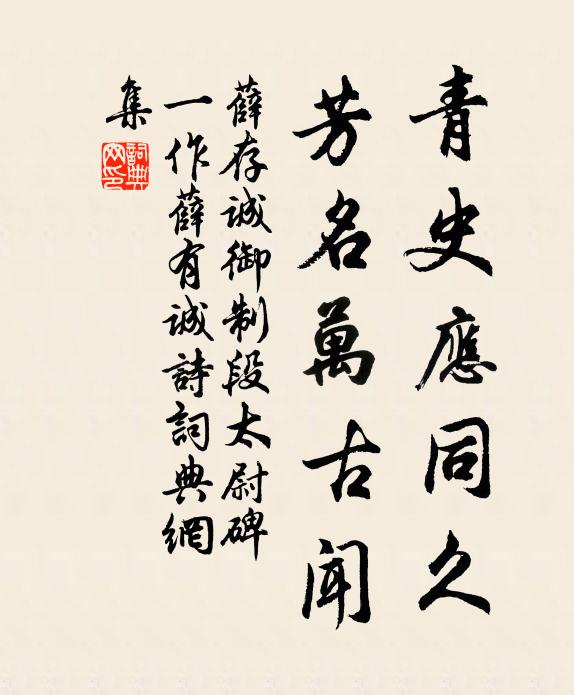 青史應同久
芳名萬古聞
薛存誠御制段太尉碑
一作薛有誠詩詞典網
集
詞典網印